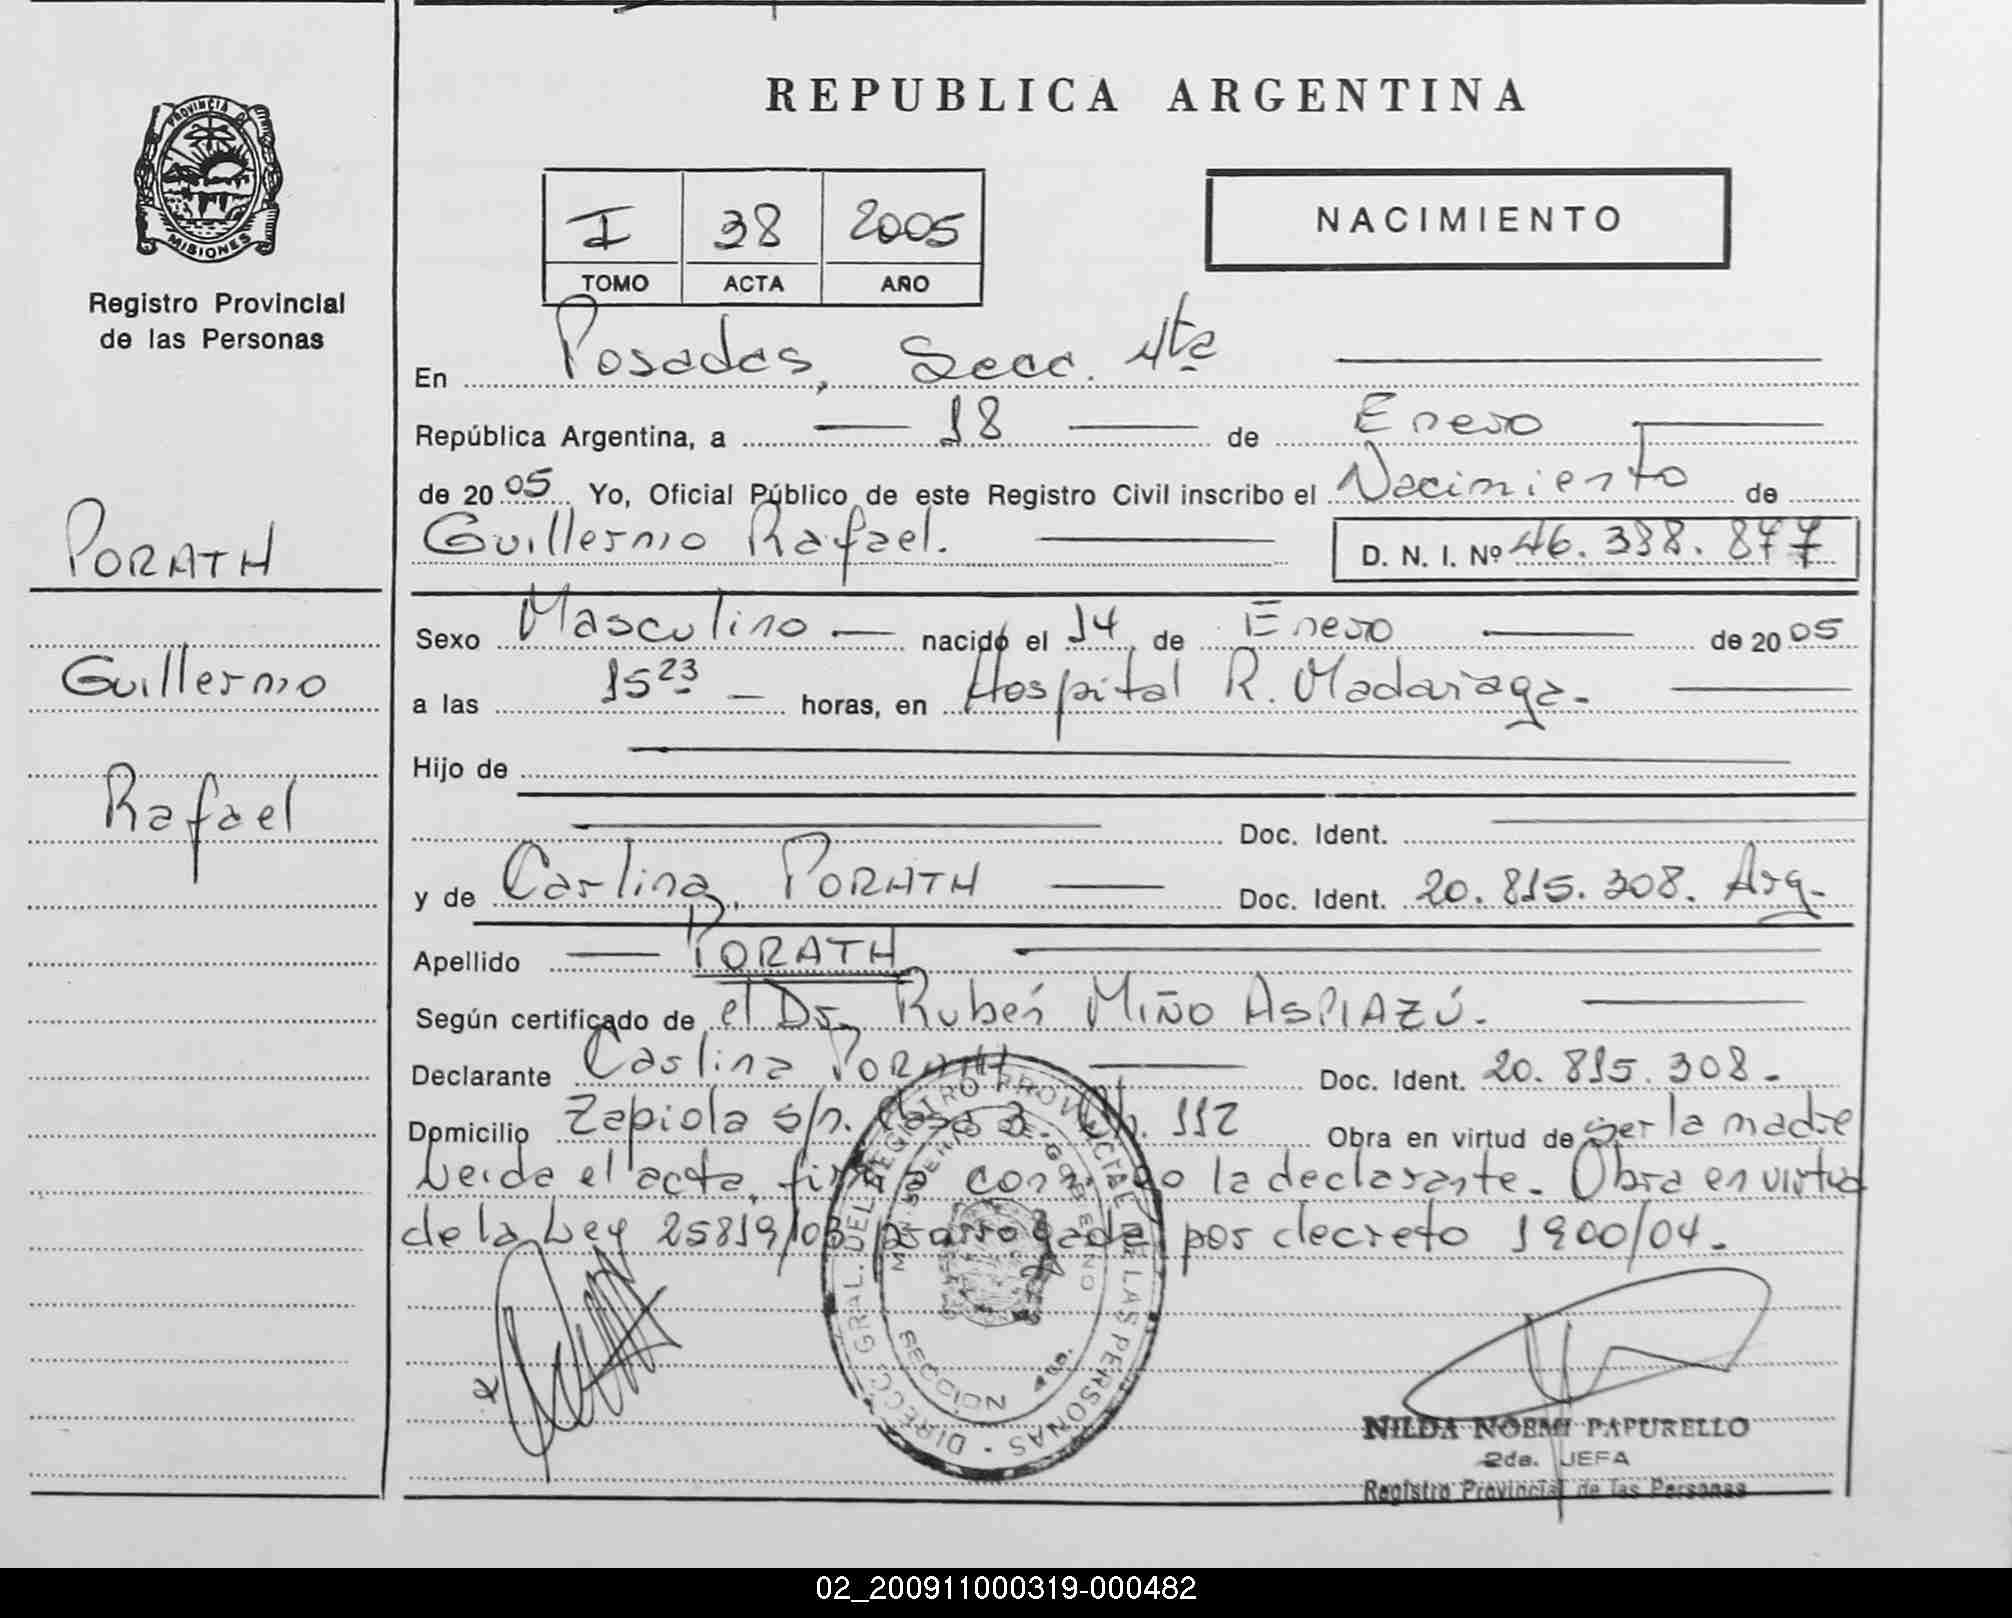 REPUBLICA ARGENTINA
PROVINCIA DE
MISIONES
Registro Provincial
de las Personas
I 38 2005
TOMO ACTA AÑO
NACIMIENTO
En Posadas, Secc. 4ta
República Argentina, a 18 de Enero
de 2005 Yo, Oficial Público de este Registro Civil inscribo el Nacimiento de
Guillermo Rafael. D. N. I. Nº 46.338.877
PORATH
Guillermo
Rafael
Sexo Masculino nacido el 14 de Enero de 2005
a las 15 23 horas, en Hospital R. Madariaga.
Hijo de
Doc. Ident.
y de Carlina, PORATH Doc. Ident. 20.815.308. Arg.
Apellido PORATH
Según certificado de el Dr. Rubén MIÑO ASPIAZÚ.
Declarante Carlina PORATH Doc. Ident. 20.815.308.
Domicilio Zapiola s/n. Casa 3 112 Obra en virtud de ser la madre
Leida el acta, firma conmigo la declarante. Obra en virtud
de la Ley 25819/03 prorrogada por decreto 1900/04.
DIRECC. GRAL. DEL REGISTRO PROVINCIAL DE LAS PERSONAS
MINISTERIO DE GOBIERNO
SECCION 4ta.
NILDA NOEMI PAPURELLO
2da. JEFA
Registro Provincial de las Personas
02_200911000319-000482